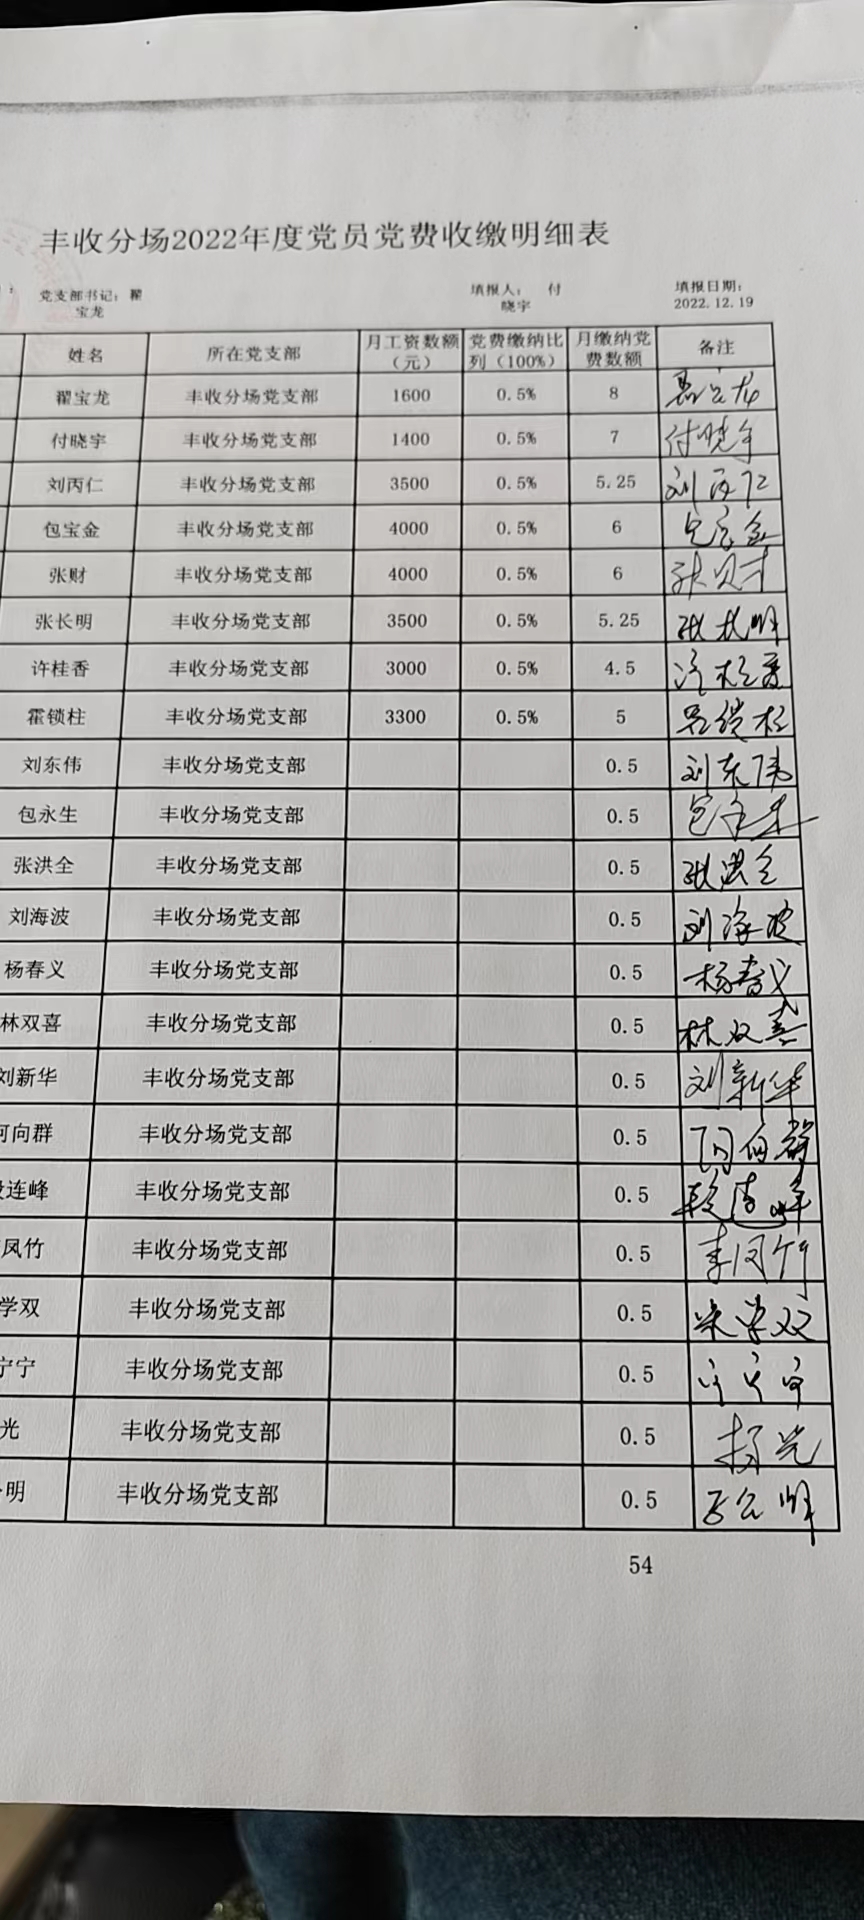 丰收分场2022年度党员党费收缴明细表
党支部书记：翟宝龙 填报人： 付晓宇 填报日期：2022.12.19
姓名 所在党支部 月工资数额（元） 党费缴纳比列（100%） 月缴纳党费数额 备注
翟宝龙 丰收分场党支部 1600 0.5% 8
付晓宇 丰收分场党支部 1400 0.5% 7 付晓宇
刘丙仁 丰收分场党支部 3500 0.5% 5.25 刘丙仁
包宝金 丰收分场党支部 4000 0.5% 6 包宝金
张财 丰收分场党支部 4000 0.5% 6 张财
张长明 丰收分场党支部 3500 0.5% 5.25 张长明
许桂香 丰收分场党支部 3000 0.5% 4.5 许桂香
霍锁柱 丰收分场党支部 3300 0.5% 5 锁柱
刘东伟 丰收分场党支部 0.5 刘东伟
包永生 丰收分场党支部 0.5 包永生
张洪全 丰收分场党支部 0.5 张洪全
刘海波 丰收分场党支部 0.5 刘海波
杨春义 丰收分场党支部 0.5 杨春义
林双喜 丰收分场党支部 0.5 林双喜
刘新华 丰收分场党支部 0.5 刘新华
何向群 丰收分场党支部 0.5 向群
连峰 丰收分场党支部 0.5 段连峰
凤竹 丰收分场党支部 0.5 李凤竹
学双 丰收分场党支部 0.5 学双
宁宁 丰收分场党支部 0.5
光 丰收分场党支部 0.5 杨光
明 丰收分场党支部 0.5 明
54